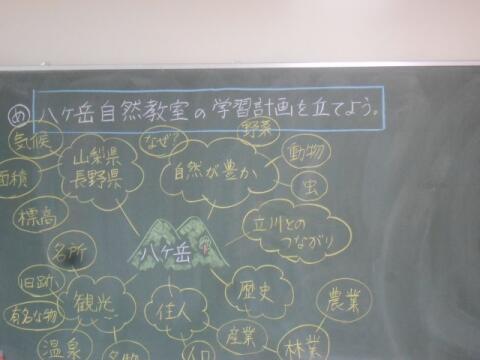 め
八ヶ岳自然教室の学習計画を立てよう。
気候
山梨県
長野県
なぜ?
野菜
自然が豊か
動物
虫
面積
標高
立川との
つながり
名所
八ヶ岳
旧跡
観光
有名な物
住人
歴史
農業
産業
林業
温泉
名物
人口